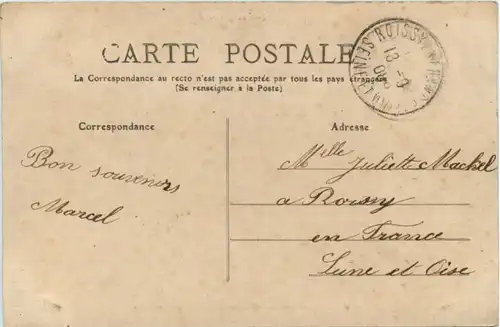 CARTE POSTALE
La Correspondance au recto n'est pas acceptée par tous les pays étrangers
(Se renseigner à la Poste)
Correspondance
Adresse
Bon souvenirs
Marcel
Mlle Juliette Machel
a Roissy
en France
Seine et Oise